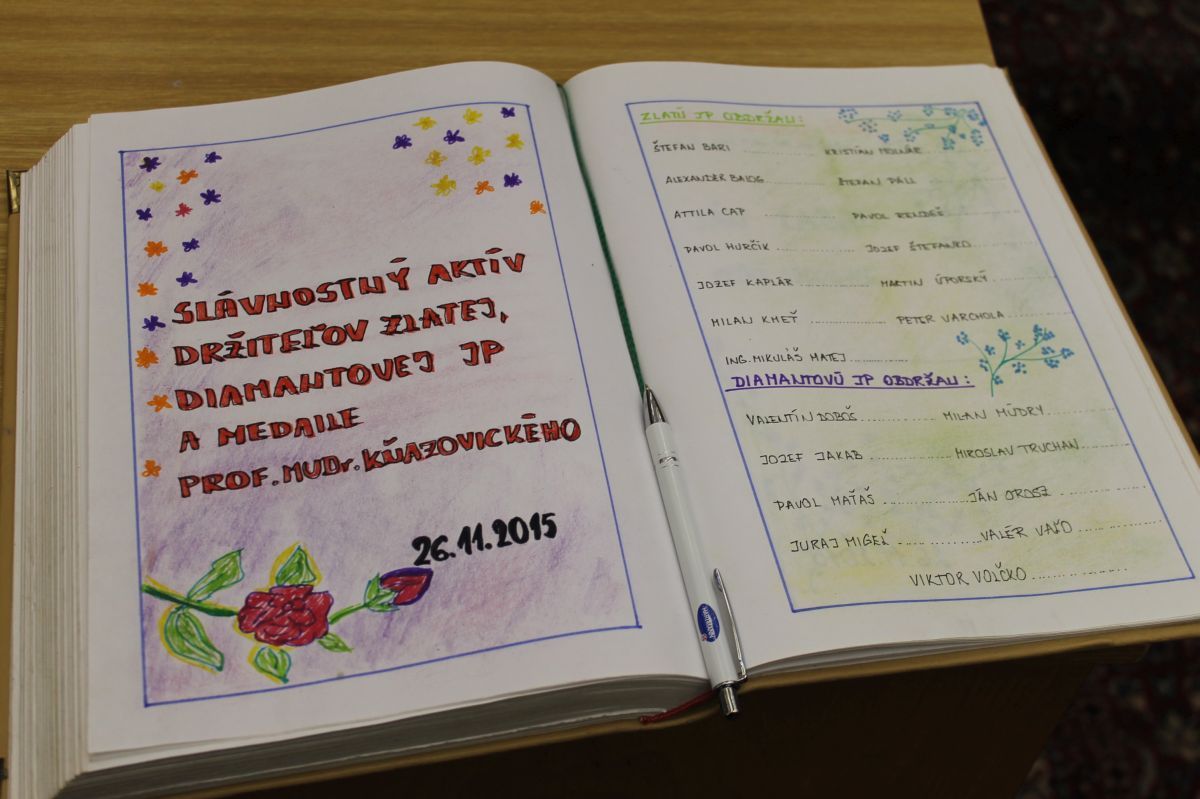 SLÁVNOSTNÝ AKTÍV
DRŽITEĽOV ZLATEJ,
DIAMANTOVEJ JP
A MEDAILE
PROF. MUDr. KŇAZOVICKÉHO
26.11.2015
ZLATÚ JP OBDRŽALI:
ŠTEFAN BARI .......... KRISTIÁN MOLNÁR
ALEXANDER BALOG .......... ŠTEFAN PÁLL
ATTILA CAP .......... PAVOL
PAVOL HURČÍK .......... JOZEF ŠTEFANKO
JOZEF KAPLÁR .......... MARTIN ÚPORSKÝ
MILAN KMEŤ .......... PETER VARCHOLA
ING. MIKULÁŠ MATEJ ..........
DIAMANTOVÚ JP OBDRŽALI:
VALENTÍN DOBOŠ .......... MILAN MÚDRY
JOZEF JAKAB .......... MIROSLAV TRUCHAN
PAVOL MAŤAŠ .......... JÁN OROSZ
JURAJ MIGEĽ .......... VALÉR VAĽO
VIKTOR VOLČKO ..........